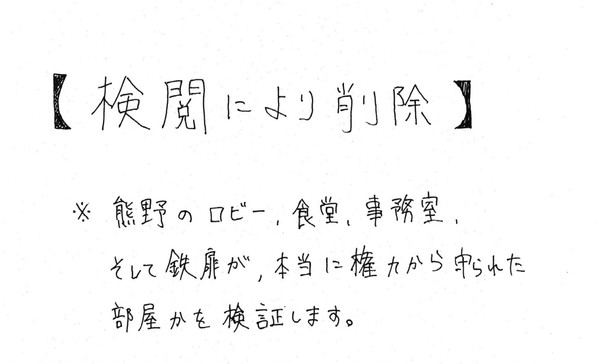 【検閲により削除】
※ 熊野のロビー、食堂、事務室、
そして鉄扉が、本当に権力から守られた
部屋かを検証します。